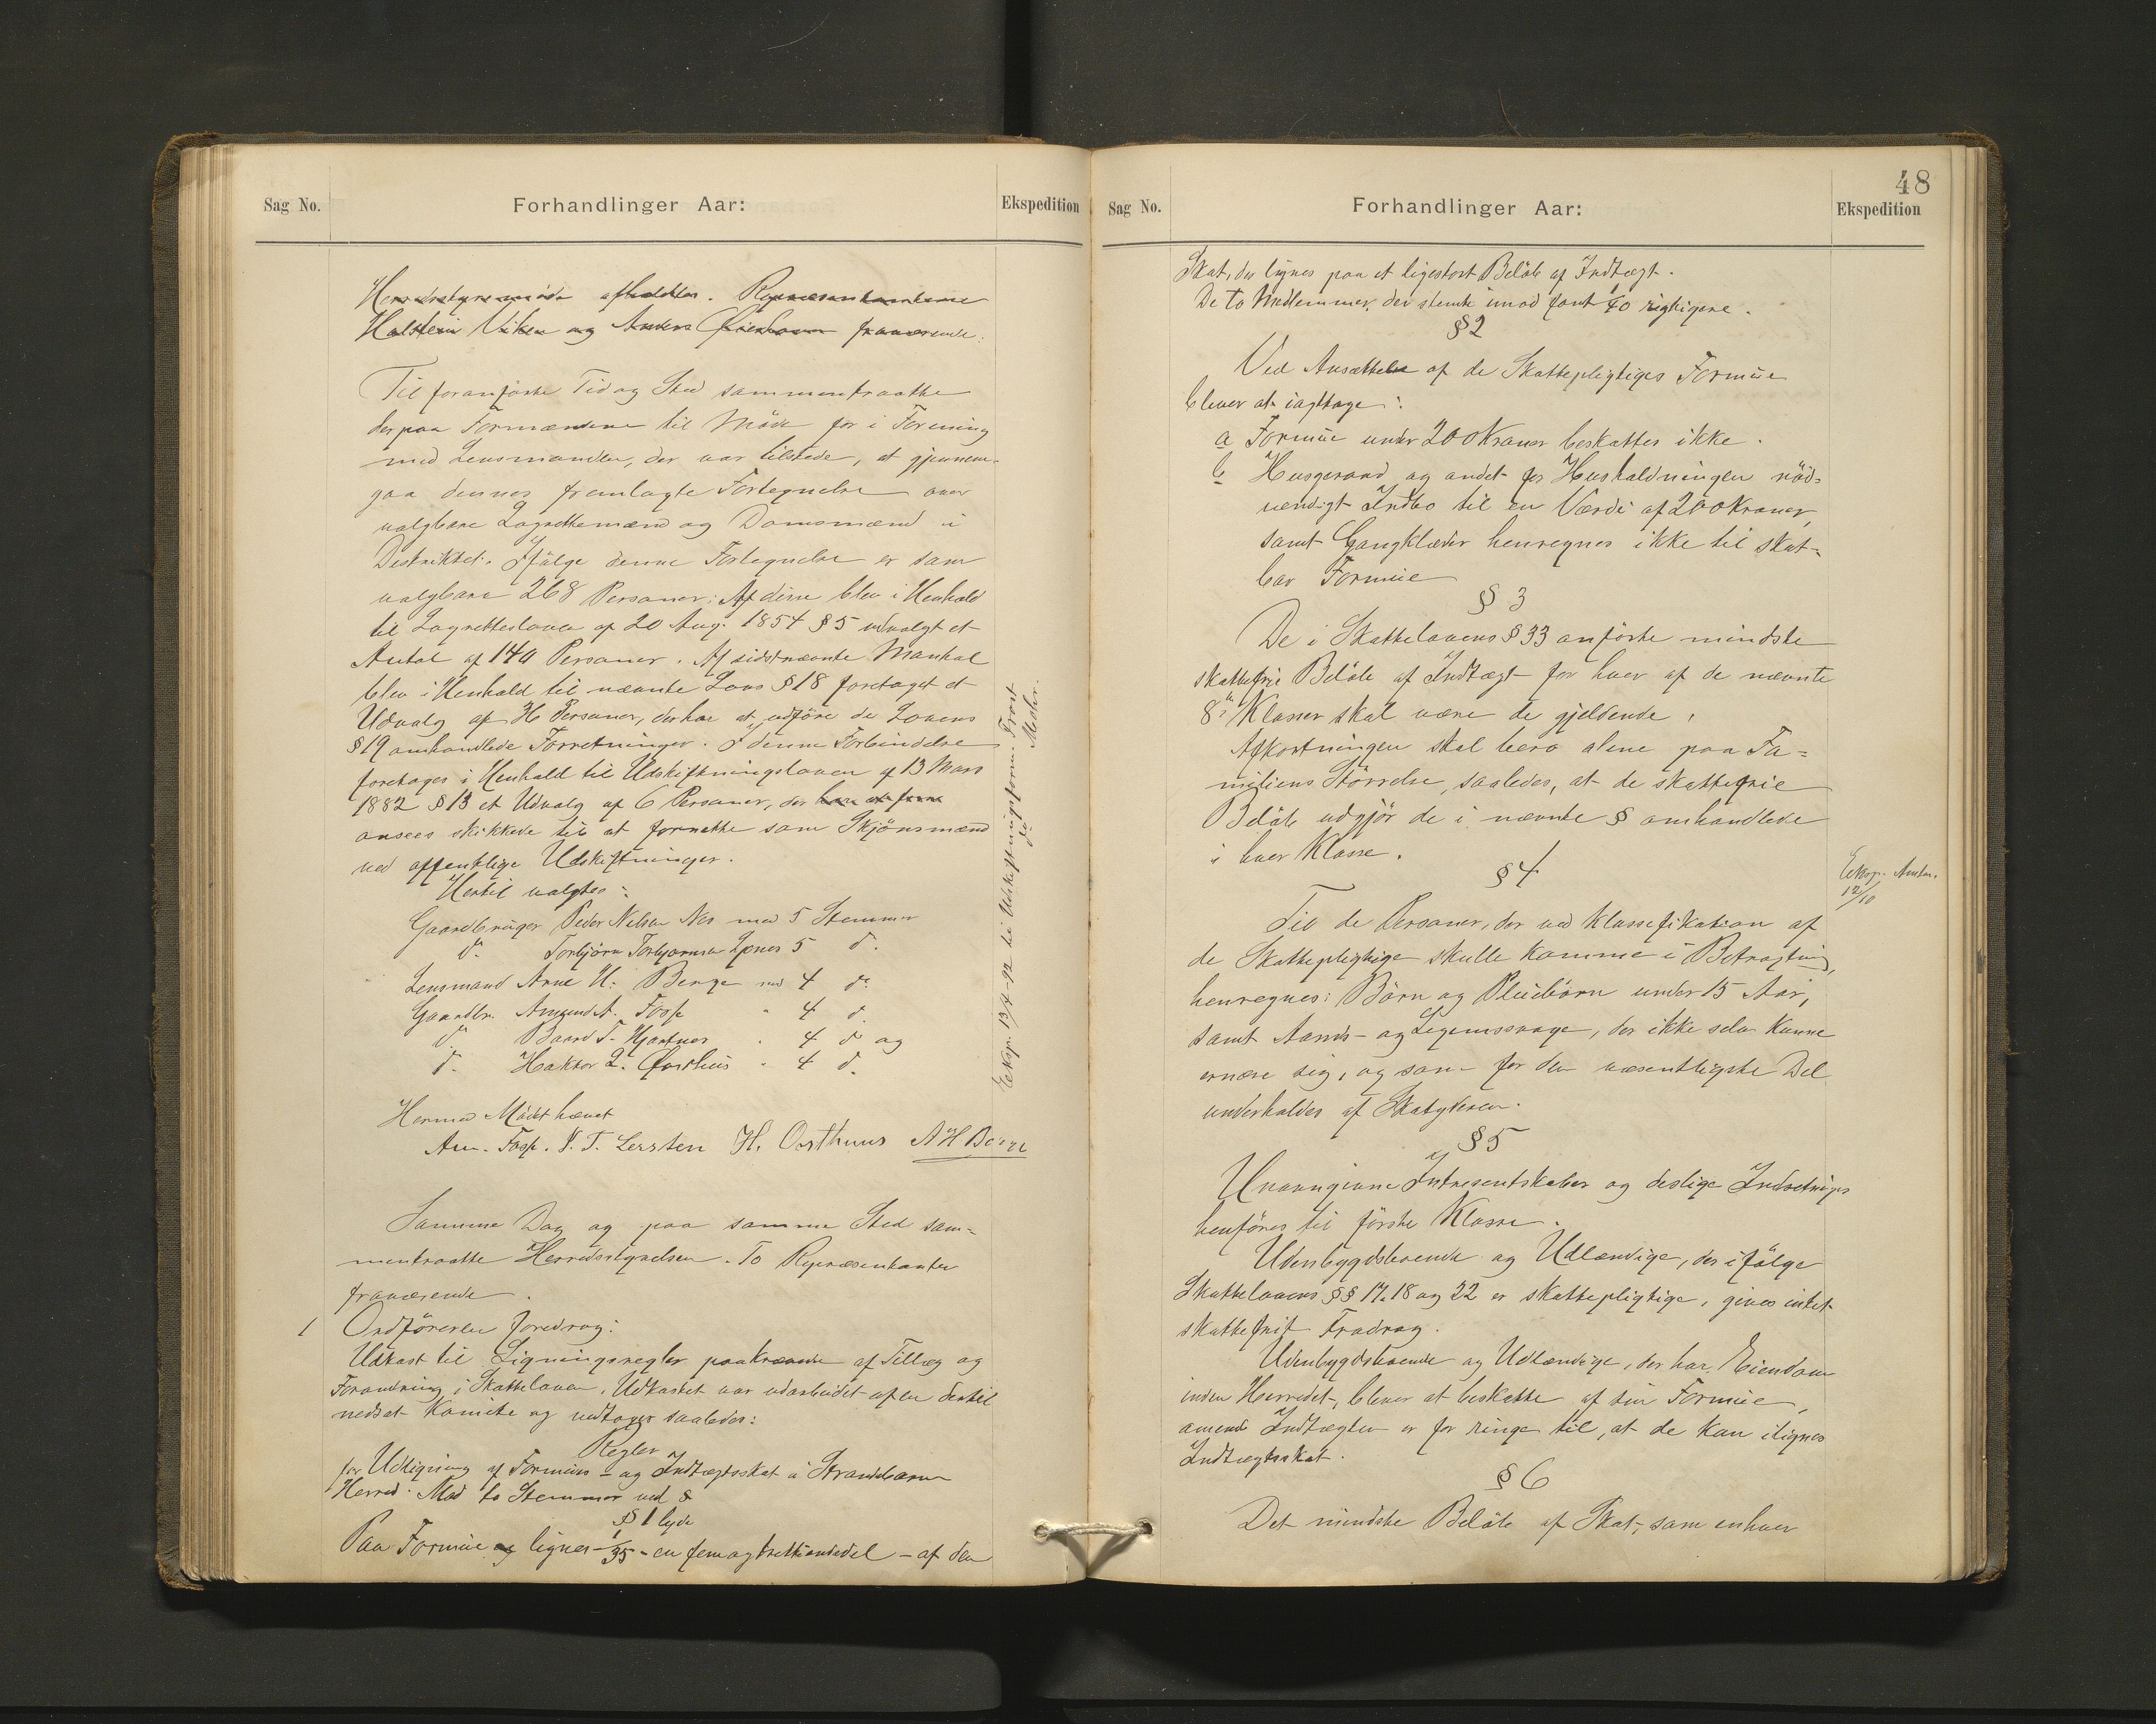 Sag No.
Forhandlinger Aar:
Ekspedition
Herredsstyremöde afholdtes. Repræsentanterne
Halstein Viken og Anders fraværende.
Til foranförte Tid og Sted sammentraadte
derpaa Formændene til Möde for i Forening
med Lensmanden, der var tilstede, at gjennem-
gaa dennes fremlagte Fortegnelse over
valgbare Lagrettemænd og Domsmænd i
Distriktet. Ifölge denne Fortegnelse er som
valgbare 268 Personer. Af disse blev i Henhold
til Lagrettesloven af 20 Aug. 1854 § 5 udvalgt et
Antal af 140 Personer. Af sidstnævnte Mantal
blev i Henhold til nævnte Lovs § 18 foretaget et
Udvalg af Personer, der har at udföre de Lovens
§ 19 omhandlede Forretninger. I denne Forbindelse
foretages i Henhold til Udskiftningsloven af 13 Mars
1882 § 13 et Udvalg af 6 Personer, der har at
ansees skikkede til at forrette som Skjönsmænd
ved offentlige Udskiftninger.
Hertil valgtes:
Gaardbruger Peder Nelsen Nes med 5 Stemmer
do. Torbjörn Torbjörnsen 5 do.
Lensmand Arne H. Berge med 4 do.
Gaardbr. Amund A. Fosse " 4 do.
do. Baard T. Hjartnes " 4 do og
do. Haktor L. Östhus " 4 do.
Eksp. 13/4-92 til Udskiftningsform. Frost
do Mohr.
Hermed Mödet hævet
Am. Fosse. H. Oosthuus A H Berge
Samme Dag og paa samme Sted sam-
mentraadte Herredsstyrelsen. To Repræsentanter
fraværende.
1 Ordföreren foredrog:
Udkast til Ligningsregler paakrævende af Tillæg og
Forandring i Skatteloven. Udkastet var udarbeidet af en dertil
nedsat Komite og vedtoges saaledes:
Regler
for Udligning af Formues- og Indtægtsskat i Strandebarm
Herred. Mod to Stemmer ved §
§ 1 lyde
Paa Formue og lignes 1/35 - en femogtrettiendedel - af den
Sag No.
Forhandlinger Aar:
Ekspedition
48
Skat, der lignes paa et ligestort Belöb af Indtægt.
De to Medlemmer, der stemte imod fant 1/40 rigtigere.
§ 2
Ved Ansættelse af de Skattepligtiges Formue
bliver at iagttage:
a Formue under 200 Kroner beskattes ikke.
b Husgeraad og andet for Husholdningen nöd-
vendigt Indbo til en Værdi af 200 Kroner,
samt Gangklæder henregnes ikke til skat-
bar Formue
§ 3
De i Skattelovens § 33 anförte mindste
skattefrie Belöb af Indtægt for hver af de nævnte
8 Klasser skal være de gjeldende.
Afkortningen skal bero alene paa Fa-
miliens Störrelse, saaledes, at de skattefrie
Belöb udgjör de i nævnte § omhandlede
i hver Klasse.
§ 4
Eksp. Amtm.
12/10
Til de Personer, der ved Klassefikation af
de Skattepligtige skulle komme i Betragtning,
henregnes: Börn og Pleiebörn under 15 Aar,
samt Aands- og Legemssvage, der ikke selv kunne
ernære sig, og som for den væsentligste Del
underholdes af Skatyderen.
§ 5
Unavngivne Intresentskaber og deslige Indretninger
henföres til förste Klasse.
Udenbygdsboende og Udlændige, der ifölge
Skattelovens §§ 17. 18 og 22 er skattepligtige, gives intet
skattefrit Fradrag.
Udenbygdsboende og Udlændige, der har Eiendom
inden Herredet, bliver at beskatte af sin Formue,
omend Indtægten er for ringe til, at de kan ilignes
Indtægtsskat.
§ 6
Det mindste Belöb af Skat, som enhver